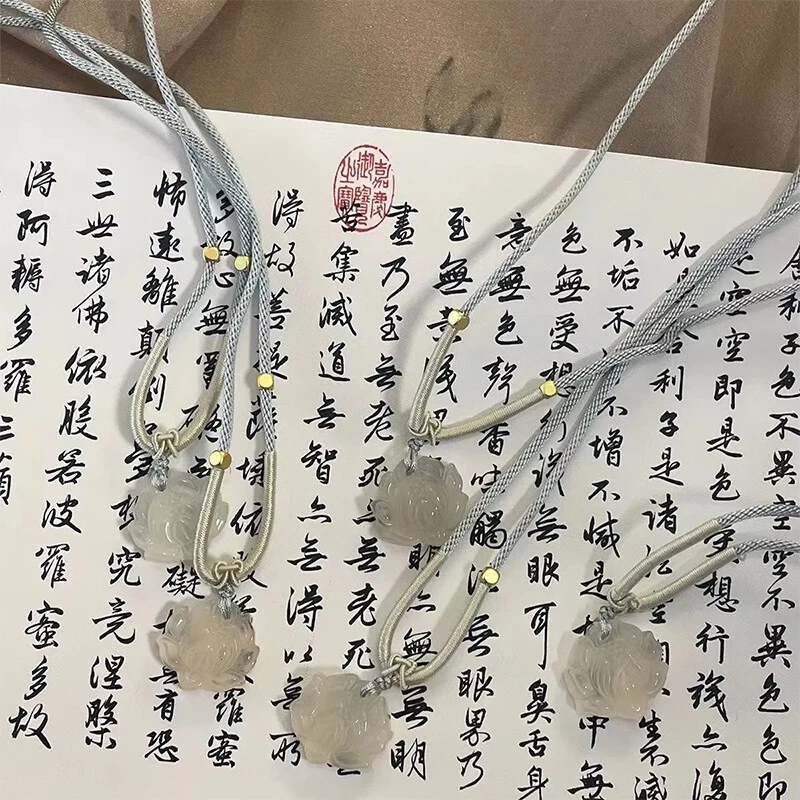 舍利子色不異空空不異色色即
空空即是色想行識亦復
如是舍利子是諸空不滅
不垢不不增不減是中無
色無受想行識無眼耳鼻舌身
意無色聲香味觸法無眼界乃
至無明亦無無明
盡乃至無老死無老死
苦集滅道無智亦無得以無所
得故菩提薩埵依羅蜜
多故心無罣礙礙無有恐
怖遠離顛倒多想究竟涅槃
三世諸佛依般若波羅蜜多故
得阿耨多羅三
嘉慶御覽之寶